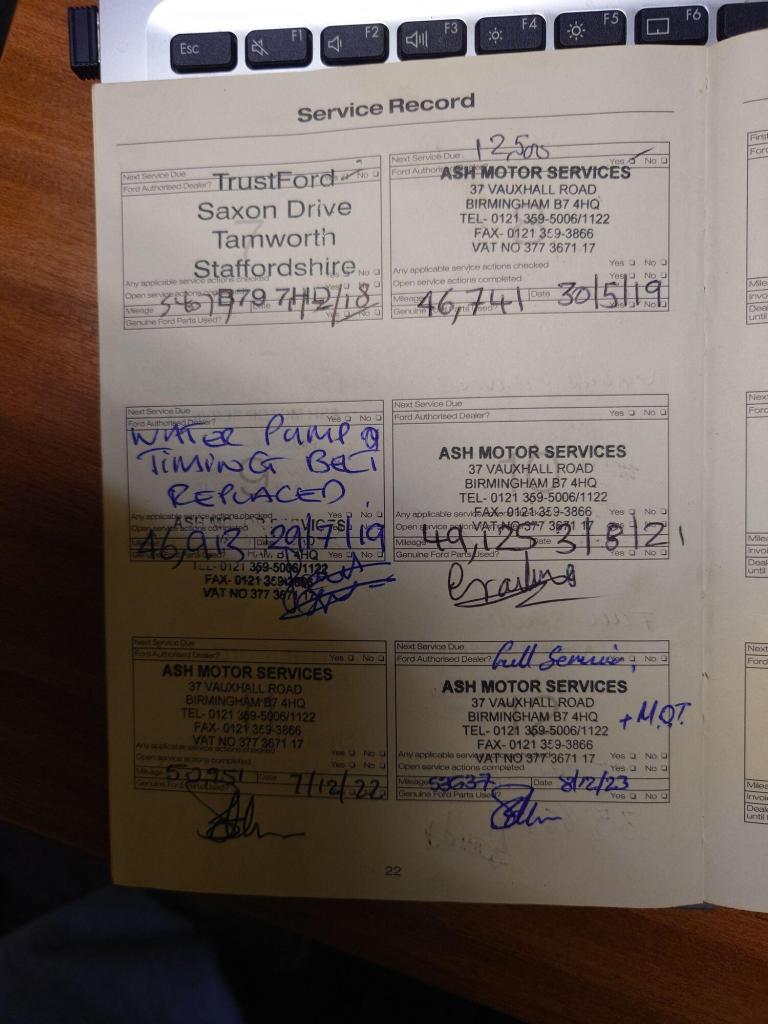 Esc
F1
F2
F3
F4
F5
F6
Service Record
Next Service Due
Ford Authorised Dealer? Yes No
TrustFord
Saxon Drive
Tamworth
Staffordshire
B79 7HD
Any applicable service actions checked
Open service actions
Mileage Date 1/2/18
Genuine Ford Parts Used? Yes No
12,500
Next Service Due
Ford Authorised Yes No
ASH MOTOR SERVICES
37 VAUXHALL ROAD
BIRMINGHAM B7 4HQ
TEL- 0121 359-5006/1122
FAX- 0121 359-3866
VAT NO 377 3671 17
Any applicable service actions checked Yes No
Open service actions completed Yes No
Mileage 46,741 Date 30/5/19
Genuine Ford Parts Used? Yes No
Next Service Due
Ford Authorised Dealer? Yes No
WATER PUMP &
TIMING BELT
REPLACED
Any applicable service actions checked Yes No
Open service actions completed Yes No
46,913 29/7/19
4HQ
TEL- 0121 359-5006/1122
FAX- 0121 359-3866
VAT NO 377 3671 17
Next Service Due
Ford Authorised Dealer? Yes No
ASH MOTOR SERVICES
37 VAUXHALL ROAD
BIRMINGHAM B7 4HQ
TEL- 0121 359-5006/1122
FAX- 0121 359-3866
VAT NO 377 3671 17
Any applicable service Yes No
Open service actions Yes No
Mileage 49,125 Date 3/8/21
Genuine Ford Parts Used? Yes No
Next Service Due
Ford Authorised Dealer? Yes No
ASH MOTOR SERVICES
37 VAUXHALL ROAD
BIRMINGHAM B7 4HQ
TEL- 0121 359-5006/1122
FAX- 0121 359-3866
VAT NO 377 3671 17
Any applicable service actions checked Yes No
Open service actions completed Yes No
Mileage 50951 Date 7/12/22
Genuine Ford Parts Used? Yes No
Next Service Due
Ford Authorised Dealer? Full Service, Yes No
ASH MOTOR SERVICES
37 VAUXHALL ROAD
BIRMINGHAM B7 4HQ + M.O.T.
TEL- 0121 359-5006/1122
FAX- 0121 359-3866
VAT NO 377 3671 17
Any applicable service Yes No
Open service actions completed Yes No
Mileage 53637 Date 8/12/23
Genuine Ford Parts Used? Yes No
22